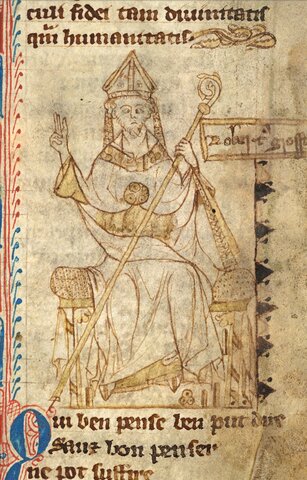 culi fidei tam diuinitatis
qͣm humanitatis
Rob̕t9 gross
Qui ben pense ben put dire
Sanz bon penser
ne pot suffire